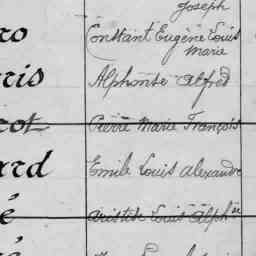 Joseph
ro Constant Eugène Louis
Marie
ris Alphonse Alfred
rot Pierre Marie François
ard Emile Louis Alexandre
é Aristide Louis Alphse